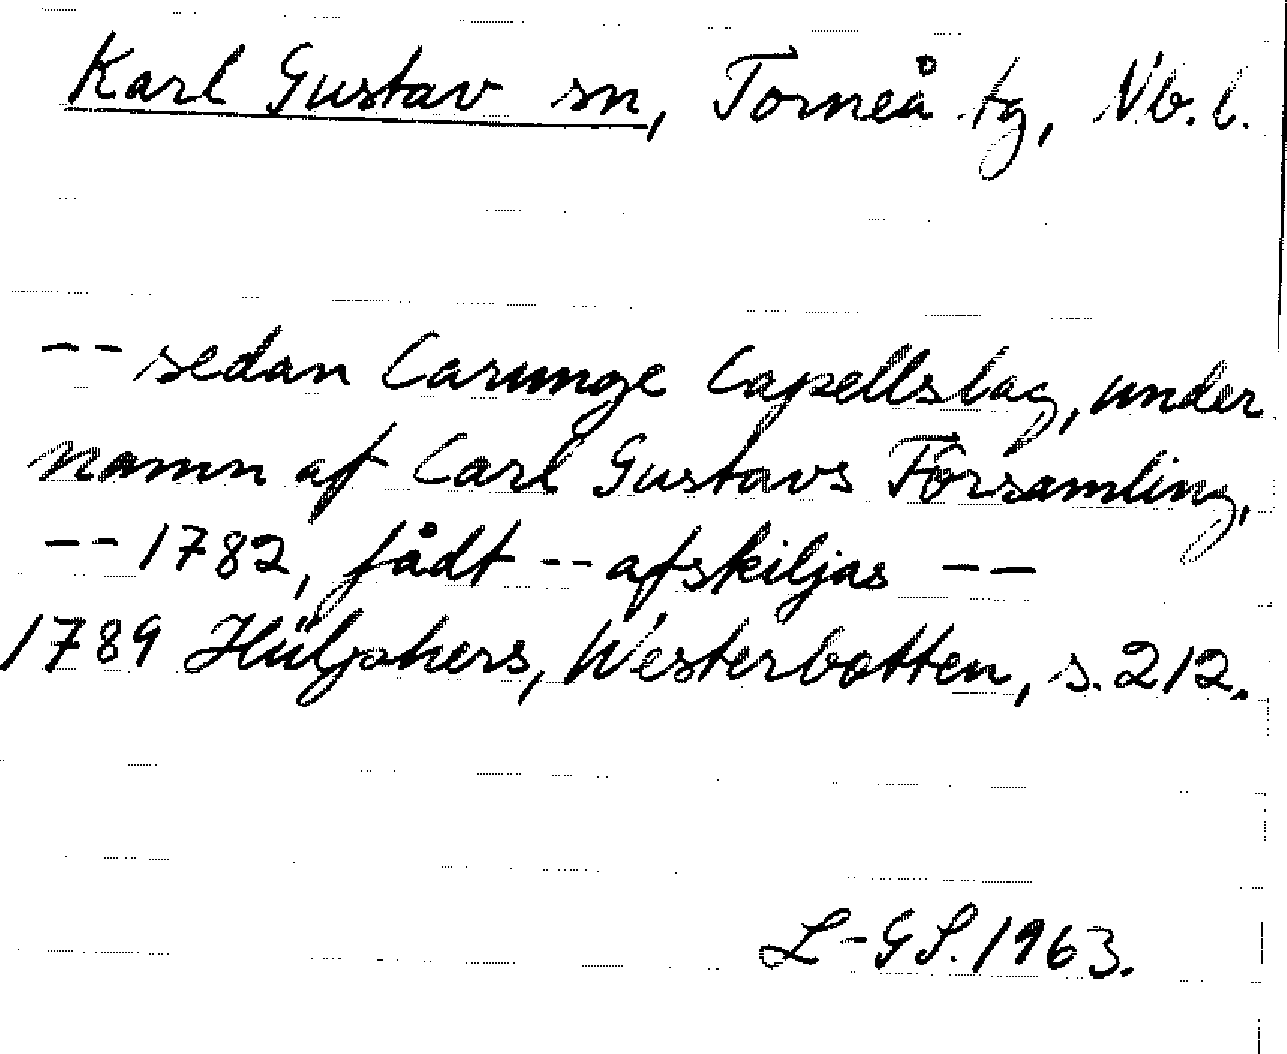 Karl Gustav sn, Torneå tg, Nb. l.
-- sedan Carunge Capellslag, under
namn af Carl Gustavs Församling,
-- 1782, fådt -- afskiljas --
1789 Hülphers, Westerbotten, s. 212.
L-GS. 1963.